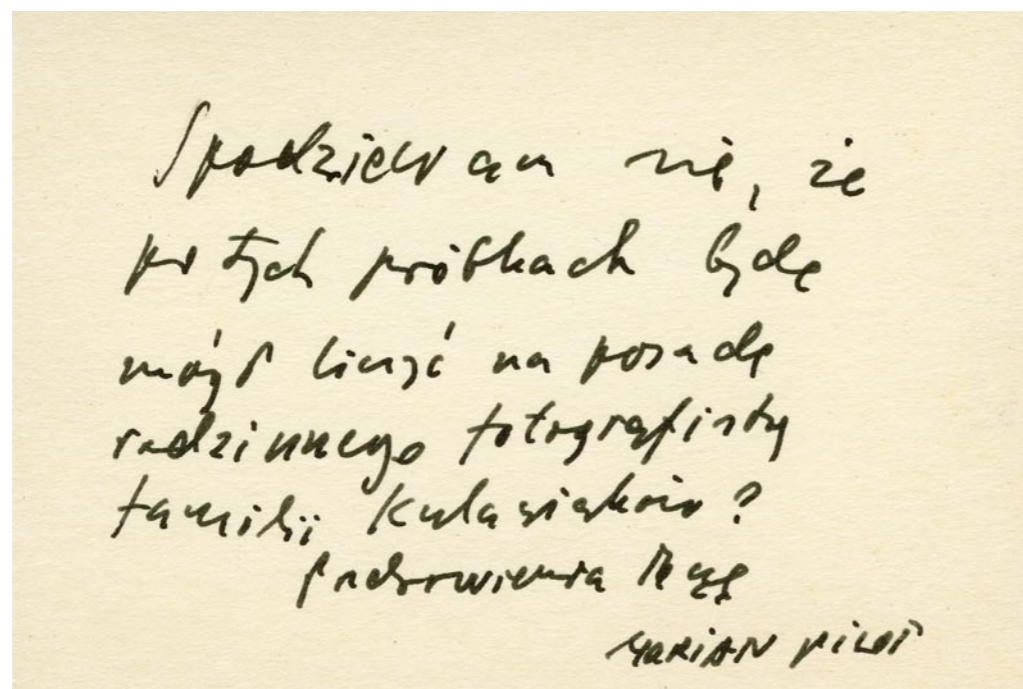 Spodziewam się, że
po tych próbkach będę
mógł liczyć na posadę
rodzinnego fotografisty
familii Kulasiaków?
Pozdrowienia
MARIAN PILOT